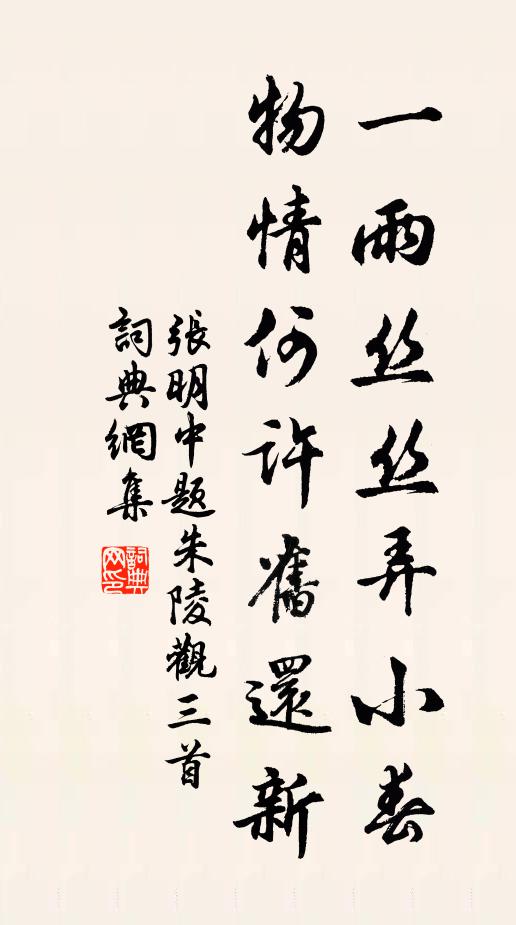 一雨丝丝弄小春
物情何许舊還新
張明中题朱陵觀三首
詞典網集
詞典网印